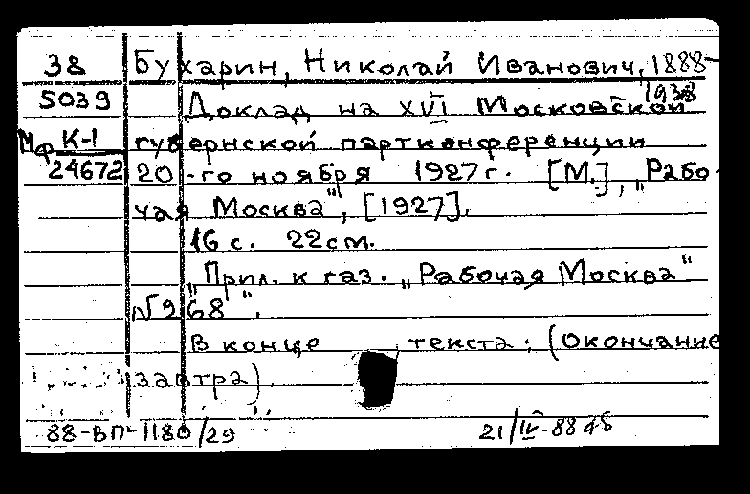 38 Бухарин, Николай Иванович, 1888-
1938
5039 Доклад на XVI Московской
Мф К-1 губернской партконференции
24672 20-го ноября 1927г. [М.], "Рабо-
чая Москва", [1927].
16 с. 22см.
"Прил. к газ. "Рабочая Москва"
№268".
В конце текста: (Окончание
завтра).
88-ВП-1180/29 21/IV-88